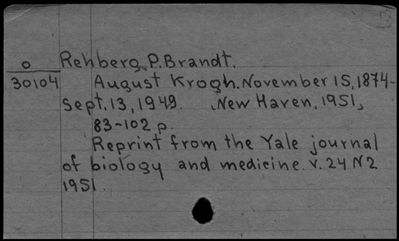 o Rehberg, P. Brandt.
30104 August Krogh. November 15, 1874-
Sept. 13, 1949. New Haven, 1951,
83-102 p.
Reprint from the Yale journal
of biology and medicine. v. 24 N2
1951.